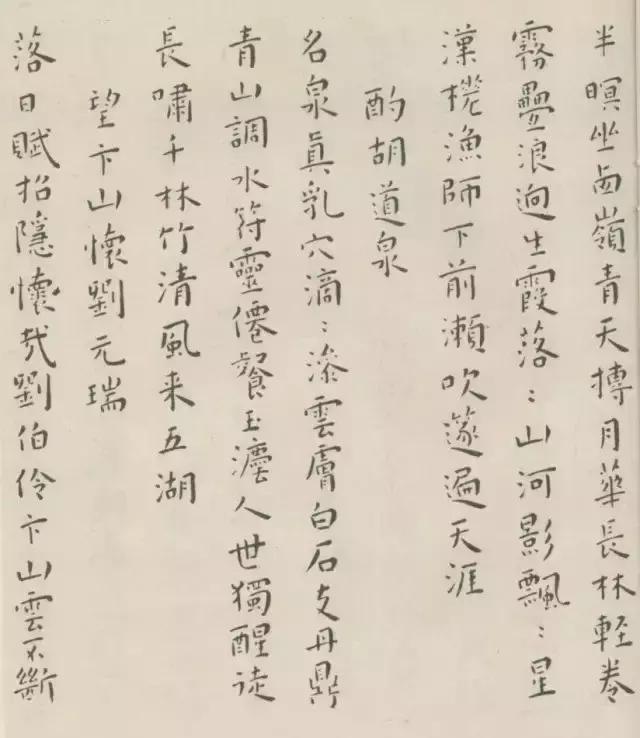 半暝坐西嶺青天摶月華長林輕卷
霧疊浪迥生霞落〻山河影飄〻星
漢槎漁師下前瀨吹篴遍天涯
酌胡道泉
名泉真乳穴滴〻滲雲膚白石支丹鼎
青山調水符靈僊餐玉瀣人世獨醒徒
長嘯千林竹清風来五湖
望卞山懷劉元瑞
落日賦招隱懷哉劉伯伶卞山雲不斷